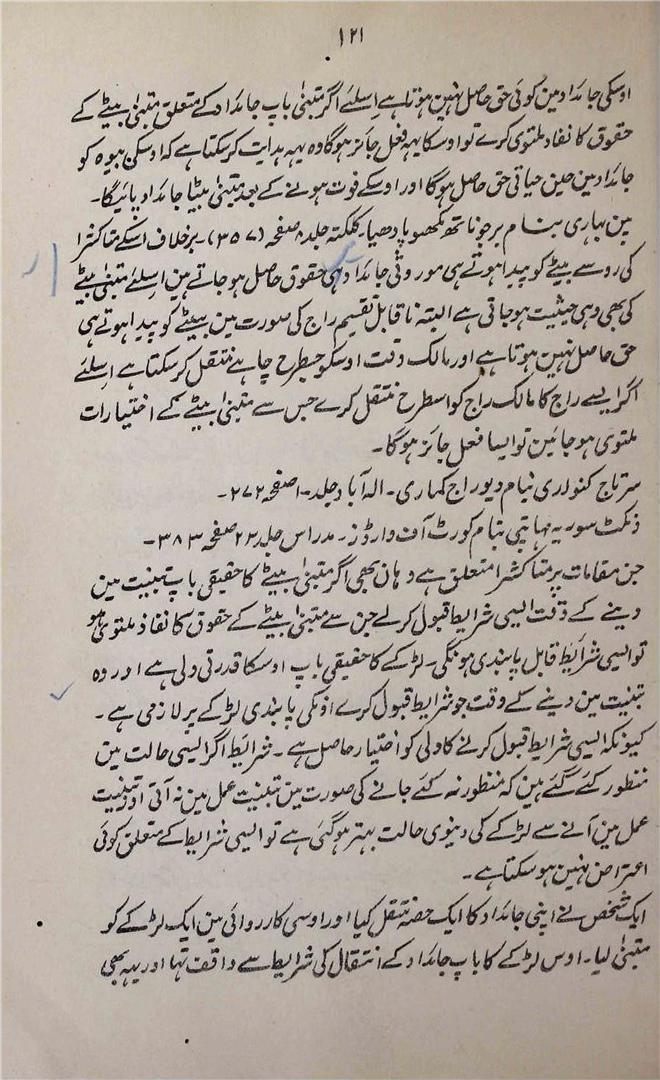 ۱۲۱
اوسکی جائداد مین کوئی حق حاصل نہین ہوتا ہے اِسلئے اگر متبنیٰ باپ جائداد کے متعلق متبنیٰ بیٹے کے
حقوق کا نفاذ ملتوی کرے تو اوسکا یہہ فعل جائز ہوگا وہ یہہ ہدایت کرسکتا ہے کہ اوسکی بیوہ کو
جائداد مین حین حیاتی حق حاصل ہوگا اور اوسکے فوت ہونے کے بعد متبنیٰ بیٹا جائداد پائیگا۔
بین بہاری بنام برجوناتھ مکھوپادھیا۔ کلکتہ جلد ۸ صفحہ (۳۵۷)۔ برخلاف اسکے متاکشرا
کی رو سے بیٹے کو پیدا ہوتے ہی موروثی جائداد مین حقوق حاصل ہوجاتے ہین اِسلئے متبنیٰ بیٹے
کی بھی وہی حیثیت ہوجاتی ہے البتہ ناقابل تقسیم راج کی صورت مین بیٹے کو پیدا ہوتے ہی
حق حاصل نہین ہوتا ہے اور مالک وقت اوسکو جسطرح چاہے منتقل کرسکتا ہے اِسلئے
اگر ایسے راج کا مالک راج کو اسطرح منتقل کرے جس سے متبنیٰ بیٹے کے اختیارات
ملتوی ہوجائین تو ایسا فعل جائز ہوگا۔
سرتاج کنواری بنام دیوراج کماری۔ الہ آباد جلد ۱۰ صفحہ ۲۷۲۔
ونکٹ سوریہ مہاپتی بنام کورٹ آف وارڈز۔ مدراس جلد ۲۲ صفحہ ۳۸۳۔
جن مقامات پر متاکشرا متعلق ہے وہان بھی اگر متبنیٰ بیٹے کا حقیقی باپ تبنیت مین
دینے کے وقت ایسی شرایط قبول کرلے جن سے متبنیٰ بیٹے کے حقوق کا نفاذ ملتوی ہو
تو ایسی شرایط قابل پابندی ہونگی۔ لڑکے کا حقیقی باپ اوسکا قدرتی ولی ہے اور وہ
تبنیت مین دینے کے وقت جو شرایط قبول کرے اونکی پابندی لڑکے پر لازمی ہے۔
کیونکہ ایسی شرایط قبول کرنے کا ولی کو اختیار حاصل ہے۔ شرایط اگر ایسی حالت مین
منظور کئے گئے ہین کہ منظور نہ کئے جانے کی صورت مین تبنیت عمل مین نہ آتی اور تبنیت
عمل مین آنے سے لڑکے کی دینوی حالت بہتر ہوگئی ہے تو ایسی شرایط کے متعلق کوئی
اعتراض نہین ہوسکتا ہے۔
ایک شخص نے اپنی جائداد کا ایک حصہ منتقل کیا اور اوسی کارروائی مین ایک لڑکے کو
متبنیٰ لیا۔ اوس لڑکے کا باپ جائداد کے انتقال کی شرایط سے واقف تہا اور یہہ بھی